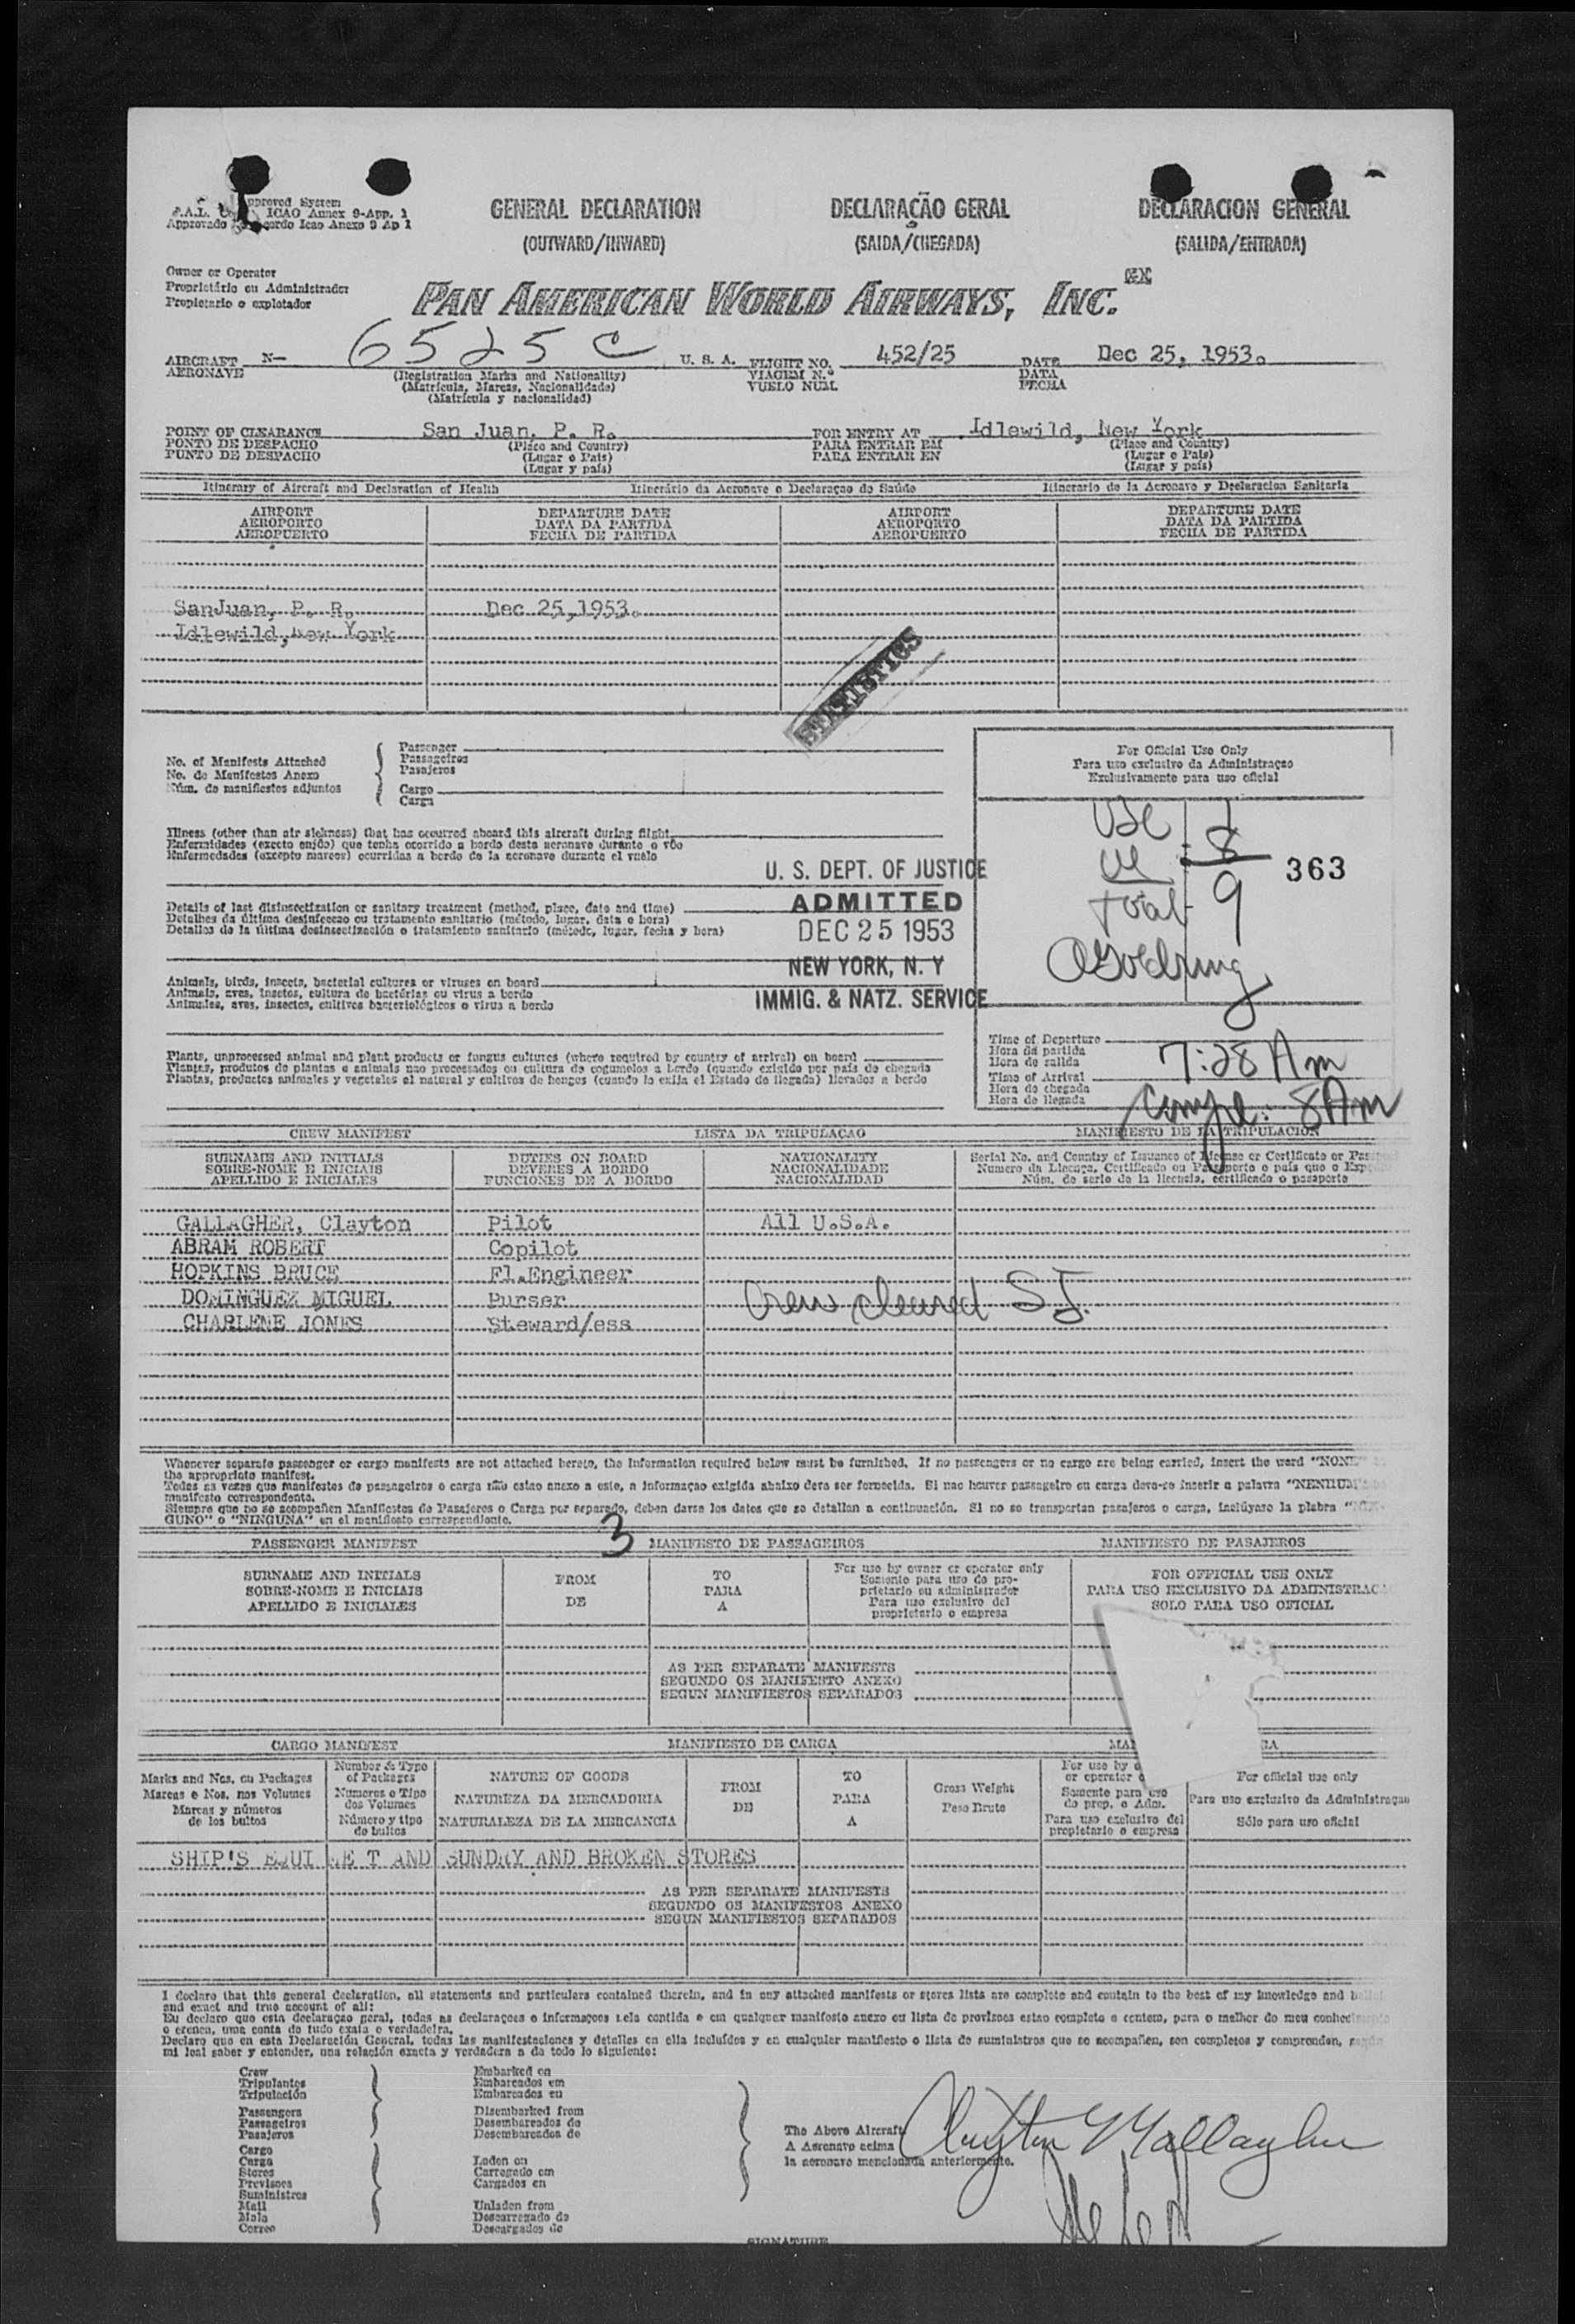 pproved System
ICAO Annex 9-App. 1
Approvado cordo Icao Anexo 9 Ap 1
GENERAL DECLARATION
(OUTWARD/INWARD)
DECLARAÇÃO GERAL
(SAIDA/CHEGADA)
DECLARACION GENERAL
(SALIDA/ENTRADA)
Owner or Operator
Proprietário ou Administrador
Propietario o explotador
PAN AMERICAN WORLD AIRWAYS, INC.
AIRCRAFT N- 6525 C U. S. A. FLIGHT NO. 452/25 DATE Dec 25, 1953.
AERONAVE (Registration Marks and Nationality) VIAGEM N.º DATA
(Matricula, Marcas, Nacionalidade) VUELO NUM. FECHA
(Matricula y nacionalidad)
POINT OF CLEARANCE San Juan, P. R. FOR ENTRY AT Idlewild, New York
PONTO DE DESPACHO (Place and Country) PARA ENTRAR EM (Place and Country)
PUNTO DE DESPACHO (Lugar e Pais) PARA ENTRAR EN (Lugar e Pais)
(Lugar y pais) (Lugar y pais)
Itinerary of Aircraft and Declaration of Health Itinerário da Aeronave e Declaraçao de Saúde Itinerario de la Aeronave y Declaracion Sanitaria
AIRPORT DEPARTURE DATE AIRPORT DEPARTURE DATE
AEROPORTO DATA DA PARTIDA AEROPORTO DATA DA PARTIDA
AEROPUERTO FECHA DE PARTIDA AEROPUERTO FECHA DE PARTIDA
SanJuan, P. R. Dec 25,1953.
Idlewild,New York
STATISTICS
No. of Manifests Attached
No. de Manifestos Anexo
Núm. de manifiestos adjuntos
Passenger
Passageiros
Pasajeros
Cargo
Carga
For Official Use Only
Para uso exclusivo da Administraçao
Exclusivamente para uso oficial
8
363
Total 9
Illness (other than air sickness) that has occurred aboard this aircraft during flight
Enfermidades (exceto enjôo) que tenha ocorrido a bordo desta aeronave durante o vôo
Enfermedades (excepto mareos) ocurridas a bordo de la aeronave durante el vuelo
U. S. DEPT. OF JUSTICE
ADMITTED
DEC 25 1953
NEW YORK, N. Y
IMMIG. & NATZ. SERVICE
Details of last disinsectization or sanitary treatment (method, place, date and time)
Detalhes da última desinfeccao ou tratamento sanitario (método, lugar, data e hora)
Detalles de la última desinsectización o tratamiento sanitario (método, lugar, fecha y hora)
Animals, birds, insects, bacterial cultures or viruses on board
Animais, aves, insetos, cultura de bactérias ou virus a bordo
Animales, aves, insectos, cultivos bacteriológicos o virus a bordo
Plants, unprocessed animal and plant products or fungus cultures (where required by country of arrival) on board
Plantas, produtos de plantas e animais nao processados ou cultura de cogumelos a bordo (quando exigido por pais de chegada
Plantas, productos animales y vegetales al natural y cultivos de hongos (cuando lo exija el Estado de llegada) llevados a bordo
Time of Departure
Hora da partida
Hora de salida
7:28 Am
Time of Arrival
Hora de chegada
Hora de llegada
Compl: 8 Am
CREW MANIFEST LISTA DA TRIPULAÇAO MANIFIESTO DE LA TRIPULACION
SURNAME AND INITIALS DUTIES ON BOARD NATIONALITY Serial No. and Country of Issuance of License or Certificate or Pas
SOBRE-NOME E INICIAIS DEVERES A BORDO NACIONALIDADE Numero da Licença, Certificado ou Passaporte o pais que o Exp
APELLIDO E INICIALES FUNCIONES DE A BORDO NACIONALIDAD Núm. de serie de la licencia, certificado o pasaporte
GALLAGHER, Clayton Pilot All U.S.A.
ABRAM ROBERT Copilot
HOPKINS BRUCE Fl.Engineer
DOMINGUEZ MIGUEL Purser Crew cleared S J.
CHARLENE JONES Steward/ess
Whenever separate passenger or cargo manifests are not attached hereto, the information required below must be furnished. If no passengers or no cargo are being carried, insert the word "NONE"
the appropriate manifest.
Todas as vezes que manifestos de passageiros o carga não estao anexo a este, a informaçao exigida abaixo deve ser fornecida. Si nao houver passageiro ou carga deve-se inserir a palavra "NENHUM
manifesto correspondente.
Siempre que no se acompañen Manifiestos de Pasajeros o Carga por separado, deben darse los datos que se detallan a continuación. Si no se transportan pasajeros o carga, inclúyase la plabra
GUNO" o "NINGUNA" en el manifiesto correspondiente.
3
PASSENGER MANIFEST MANIFESTO DE PASSAGEIROS MANIFIESTO DE PASAJEROS
SURNAME AND INITIALS
SOBRE-NOME E INICIAIS
APELLIDO E INICIALES
FROM
DE
TO
PARA
A
For use by owner or operator only
Somente para uso do pro-
prietario ou administrador
Para uso exclusivo del
proprietario o empresa
FOR OFFICIAL USE ONLY
PARA USO EXCLUSIVO DA ADMINISTRAC
SOLO PARA USO OFICIAL
AS PER SEPARATE MANIFESTS
SEGUNDO OS MANIFESTO ANEXO
SEGUN MANIFIESTOS SEPARADOS
CARGO MANIFEST MANIFIESTO DE CARGA
Marks and Nos. on Packages
Marcas e Nos. nos Volumes
Marcas y números
de los bultos
Number & Type
of Packages
Numeros e Tipo
dos Volumes
Número y tipo
de bultos
NATURE OF GOODS
NATUREZA DA MERCADORIA
NATURALEZA DE LA MERCANCIA
FROM
DE
TO
PARA
A
Gross Weight
Peso Bruto
For use by o
or operator
Somente para uso
do prop. o Adm.
Para uso exclusivo del
propietario o empresa
For official use only
Para uso exclusivo da Administraçao
Sólo para uso oficial
SHIP'S EQUI ME T AND SUNDRY AND BROKEN STORES
AS PER SEPARATE MANIFESTS
SEGUNDO OS MANIFESTOS ANEXO
SEGUN MANIFIESTOS SEPARADOS
I declare that this general declaration, all statements and particulars contained therein, and in any attached manifests or stores lists are complete and contain to the best of my knowledge and belief
and exact and true account of all:
Eu declaro que esta declaraçao geral, todas as declaraçoes e informaçoes nela contida e em qualquer manifesto anexo ou lista de provisoes estao completo e contem, para o melhor do meu conhecimento
e crenca, uma conta de tudo exata e verdadeira.
Declaro que en esta Declaración General, todas las manifestaciones y detalles en ella incluídos y en cualquier manifiesto o lista de suministros que se acompañen, son completos y comprenden, según
mi leal saber y entender, una relación exacta y verdadera a de todo lo siguiente:
Crew
Tripulantes
Tripulación
Passengers
Passageiros
Pasajeros
Cargo
Carga
Stores
Provisoes
Suministros
Mail
Mala
Correo
Embarked on
Embarcados em
Embarcados en
Disembarked from
Desembarcados de
Desembarcados de
Laden on
Carregado em
Cargados en
Unladen from
Descarregado de
Descargados de
The Above Aircraft
A Aeronave acima
la aeronave mencionada anteriormente.
Clayton Gallagher
SIGNATURE